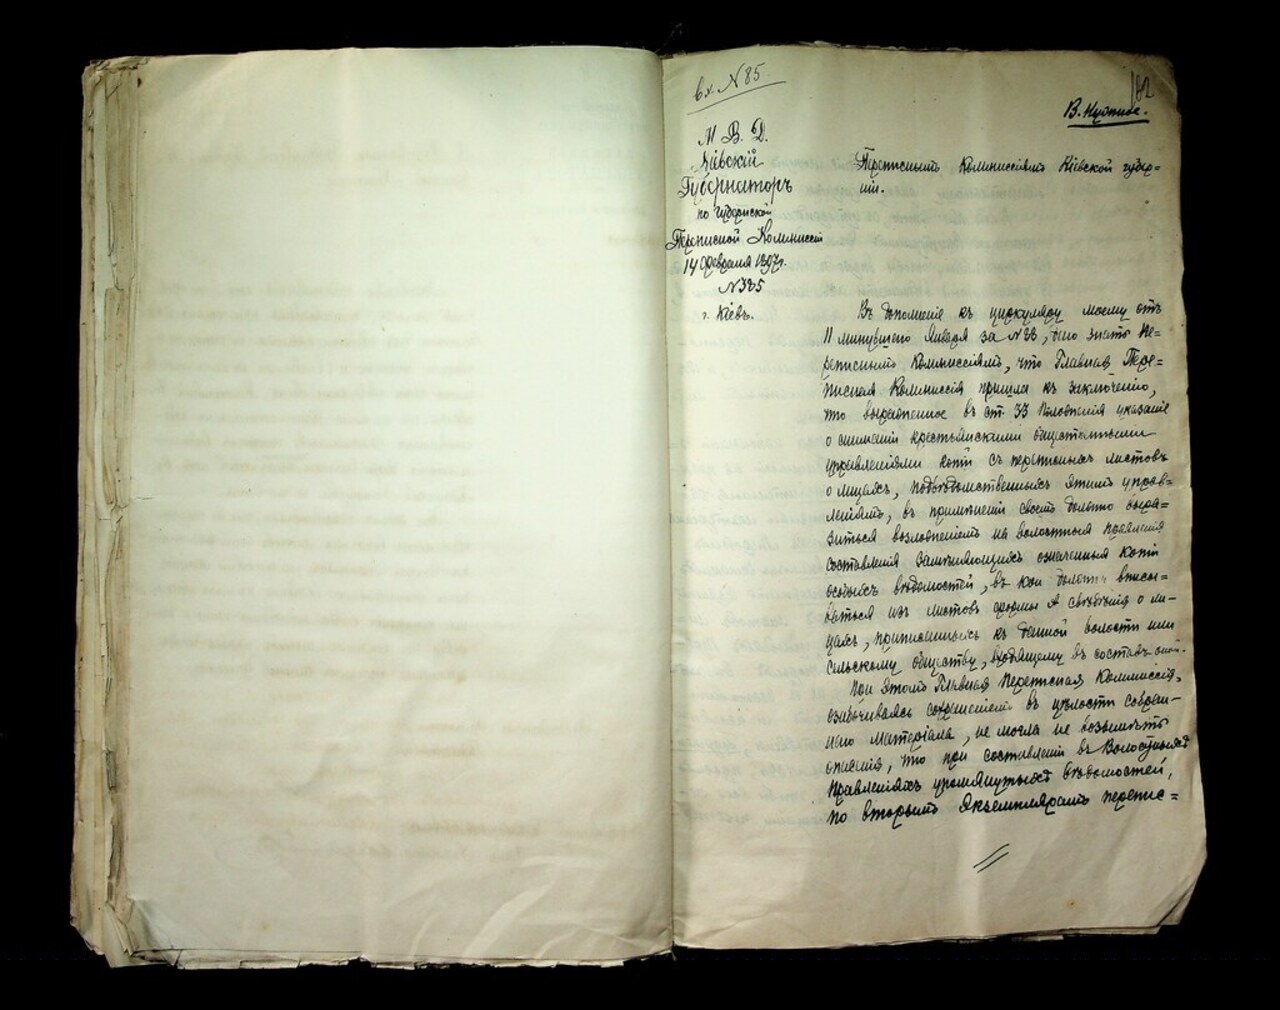 вх. N 85
182
В. нужное.
М. В. Д.
Кіевскій
Губернаторъ
по Губернской
Переписной Коммиссіи
14 февраля 1897 г.
N 325
г. Кіевъ.
Переписнымъ Коммиссіямъ Кіевской губер=
ніи.
Въ дополненіе къ циркуляру моему отъ
11 минувшаго Января за N 28, даю знать Пе=
реписнымъ Коммиссіямъ, что Главная Пере=
писная Коммиссія пришла къ заключенію,
что выраженное въ ст. 33 Положенія указаніе
о снятіи крестьянскими общественными
управленіями копій съ переписныхъ листовъ
о лицахъ, подвѣдомственныхъ этимъ управ=
леніямъ, въ примѣненіи своемъ должно выра=
зиться возложеніемъ на волостныя правленія
составленія замѣняющихъ означенныя копіи
особыхъ вѣдомостей, въ кои должны вписы=
ваться изъ листовъ формы А свѣдѣнія о ли=
цахъ, приписанныхъ къ данной волости или
сельскому обществу, входящему въ составъ оной.
При этомъ Главная Переписная Коммиссія,
озабочиваясь сохраненіемъ въ цѣлости собран=
наго матеріала, не могла не возымѣть
опасенія, что при составленіи въ Волостныхъ
Правленіяхъ упомянутыхъ вѣдомостей,
по вторымъ экземплярамъ перепис=